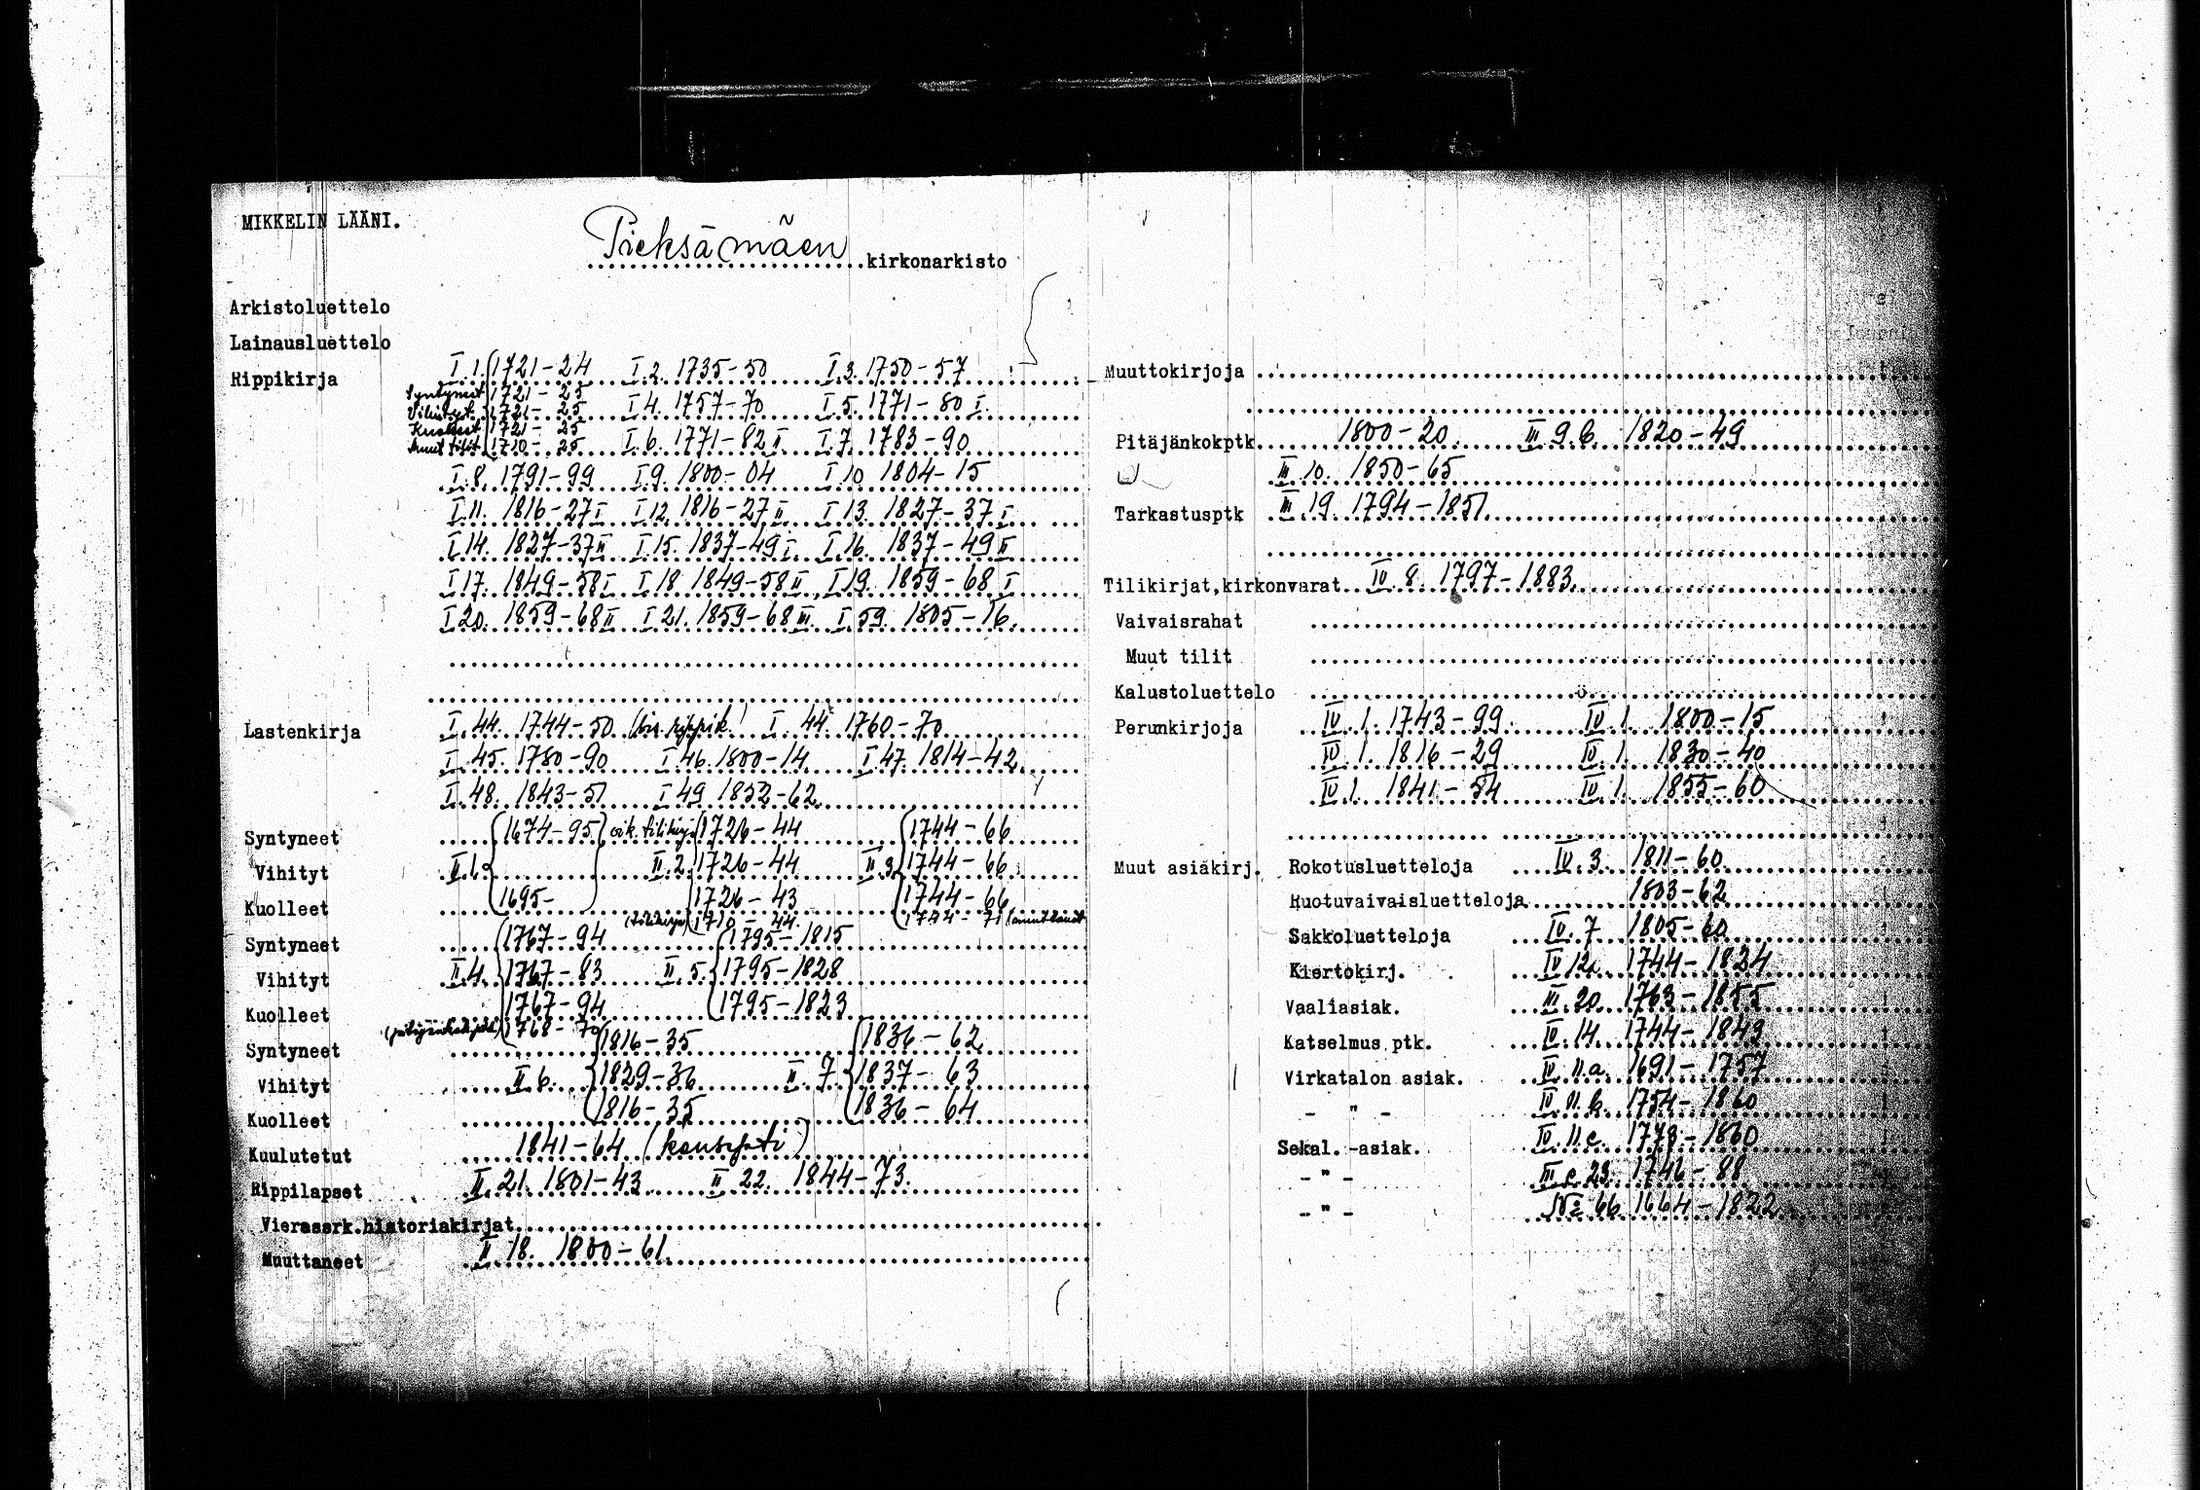 MIKKELIN LÄÄNI.
Pieksämäen kirkonarkisto
Arkistoluettelo
Lainausluettelo
Rippikirja I.1. 1721-24 I.2. 1735-50 I.3. 1750-57
Syntyneet 1721-25
Vihityt 1721-25 I.4. 1757-70 I.5. 1771-80 I
Kuolleet 1721-25
muut tilit 1710-25 I.6. 1771-82 II I.7. 1783-90
I.8. 1791-99 I.9. 1800-04 I.10 1804-15
I.11. 1816-27 I I.12. 1816-27 II I.13. 1827-37 I
I.14. 1827-37 II I.15. 1837-49 I I.16. 1837-49 II
I.17. 1849-58 I I.18 1849-58 II I.19. 1859-68 I
I.20. 1859-68 II I.21. 1859-68 III I.59. 1805-16.
Lastenkirja I.44. 1744-50 rippik. I.44. 1760-70
I.45. 1780-90 I.46. 1800-14 I.47. 1814-42
I.48. 1843-51 I.49 1852-62
Syntyneet 1674-95 tilikirja 1726-44 1744-66
Vihityt II.1. II.2. 1726-44 II.3. 1744-66
Kuolleet 1695- 1726-43 1744-66
(tilikirja) 1710-44 1744-71
Syntyneet 1767-94 1795-1815
Vihityt II.4. 1767-83 II.5. 1795-1828
Kuolleet 1767-94 1795-1823
1768-70
Syntyneet 1816-35 1836-62
Vihityt II.6. 1829-36 II.7 1837-63
Kuolleet 1816-35 1836-64
Kuulutetut 1841-64 (konsepti)
Rippilapset II.21. 1801-43 II 22. 1844-73.
Vierassrk.historiakirjat
Muuttaneet II 18. 1800-61.
Muuttokirjoja
Pitäjänkokptk 1800-20. III 9.b. 1820-49
III.10. 1850-65
Tarkastusptk III.19. 1794-1851.
Tilikirjat,kirkonvarat IV.8. 1797-1883.
Vaivaisrahat
Muut tilit
Kalustoluettelo
Perunkirjoja IV.1. 1743-99. IV.1. 1800-15
IV.1. 1816-29 IV.1. 1830-40
IV.1. 1841-54 IV.1. 1855-60
Muut asiakirj. Rokotusluetteloja IV.3. 1811-60.
Ruotuvaivaisluetteloja 1803-62
Sakkoluetteloja IV.7 1805-60
Kiertokirj. IV 12. 1744-1824
Vaaliasiak. III.20. 1763-1855
Katselmus ptk. IV.14. 1744-1849
Virkatalon asiak. IV.11.a. 1691-1757
- " - IV.11.b. 1754-1860
Sekal.-asiak. IV.11.c. 1778-1860
- " - III c 23. 1746-88
- " - 66 1664-1822